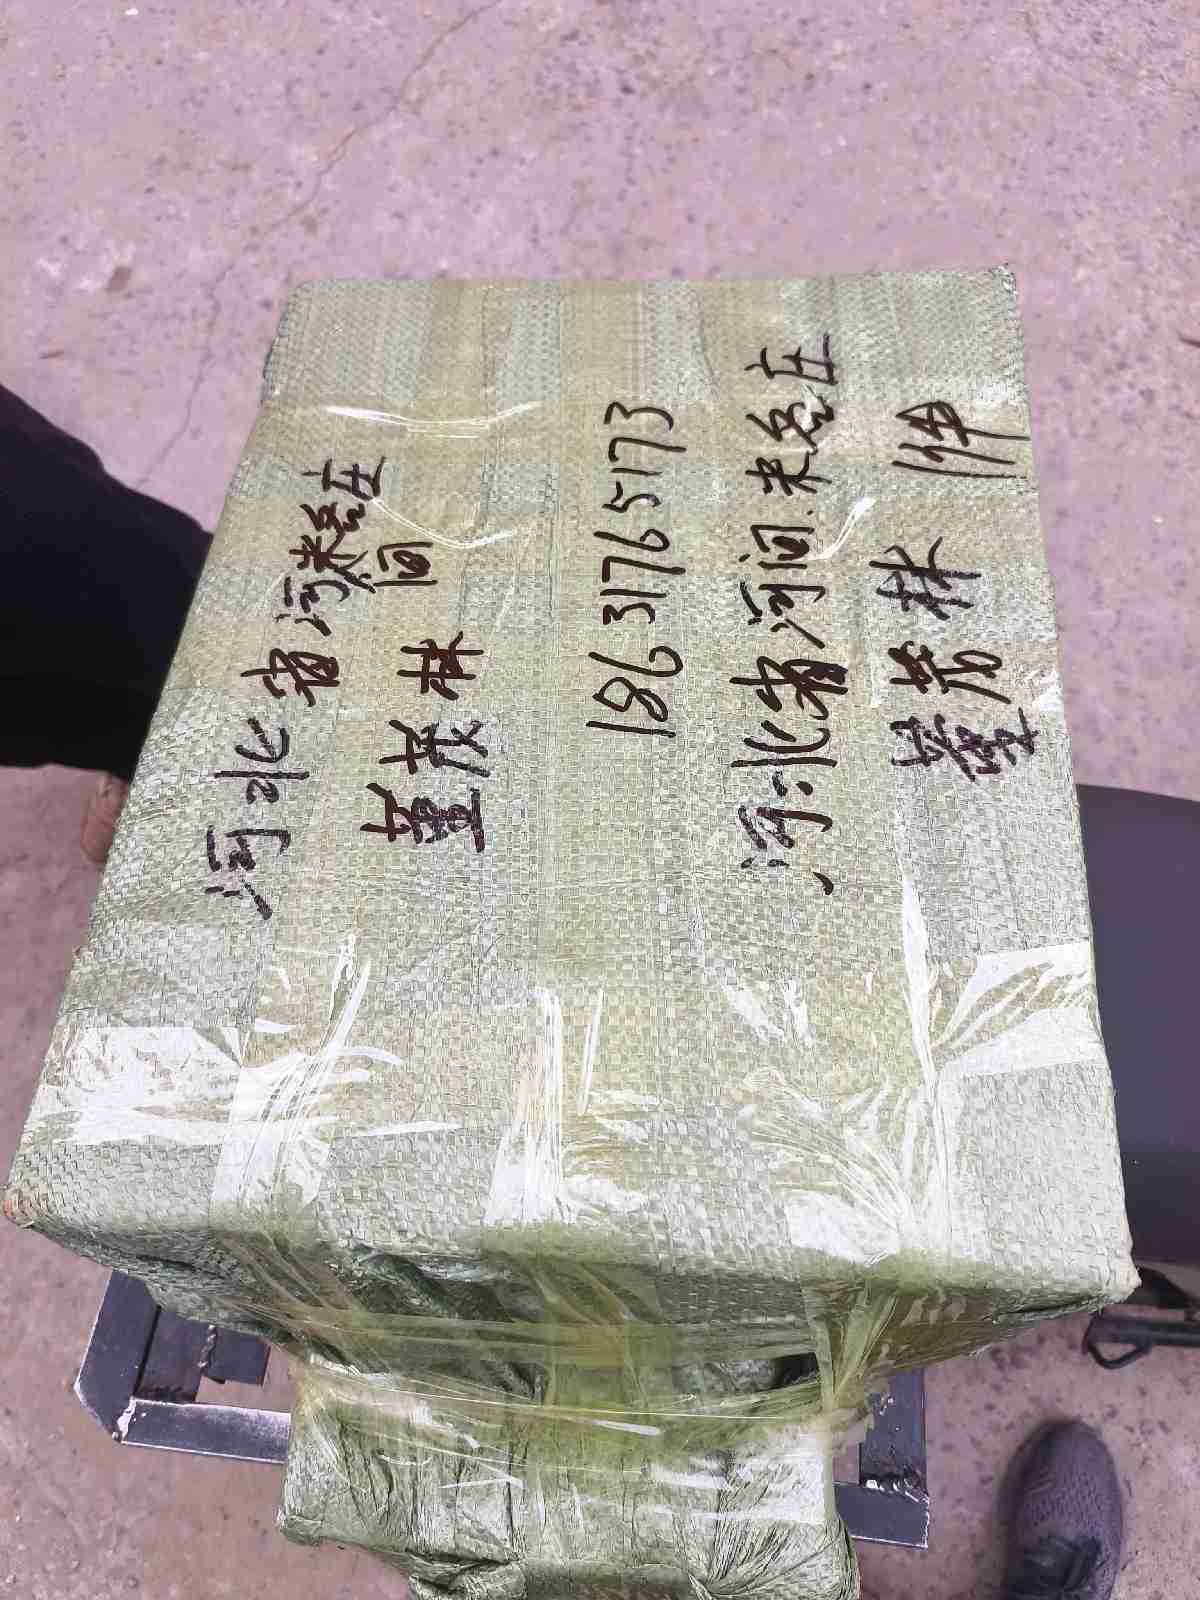 河北省河间
米各庄
董茂林
18631765173
河北省河间.米各庄
董茂林 1件